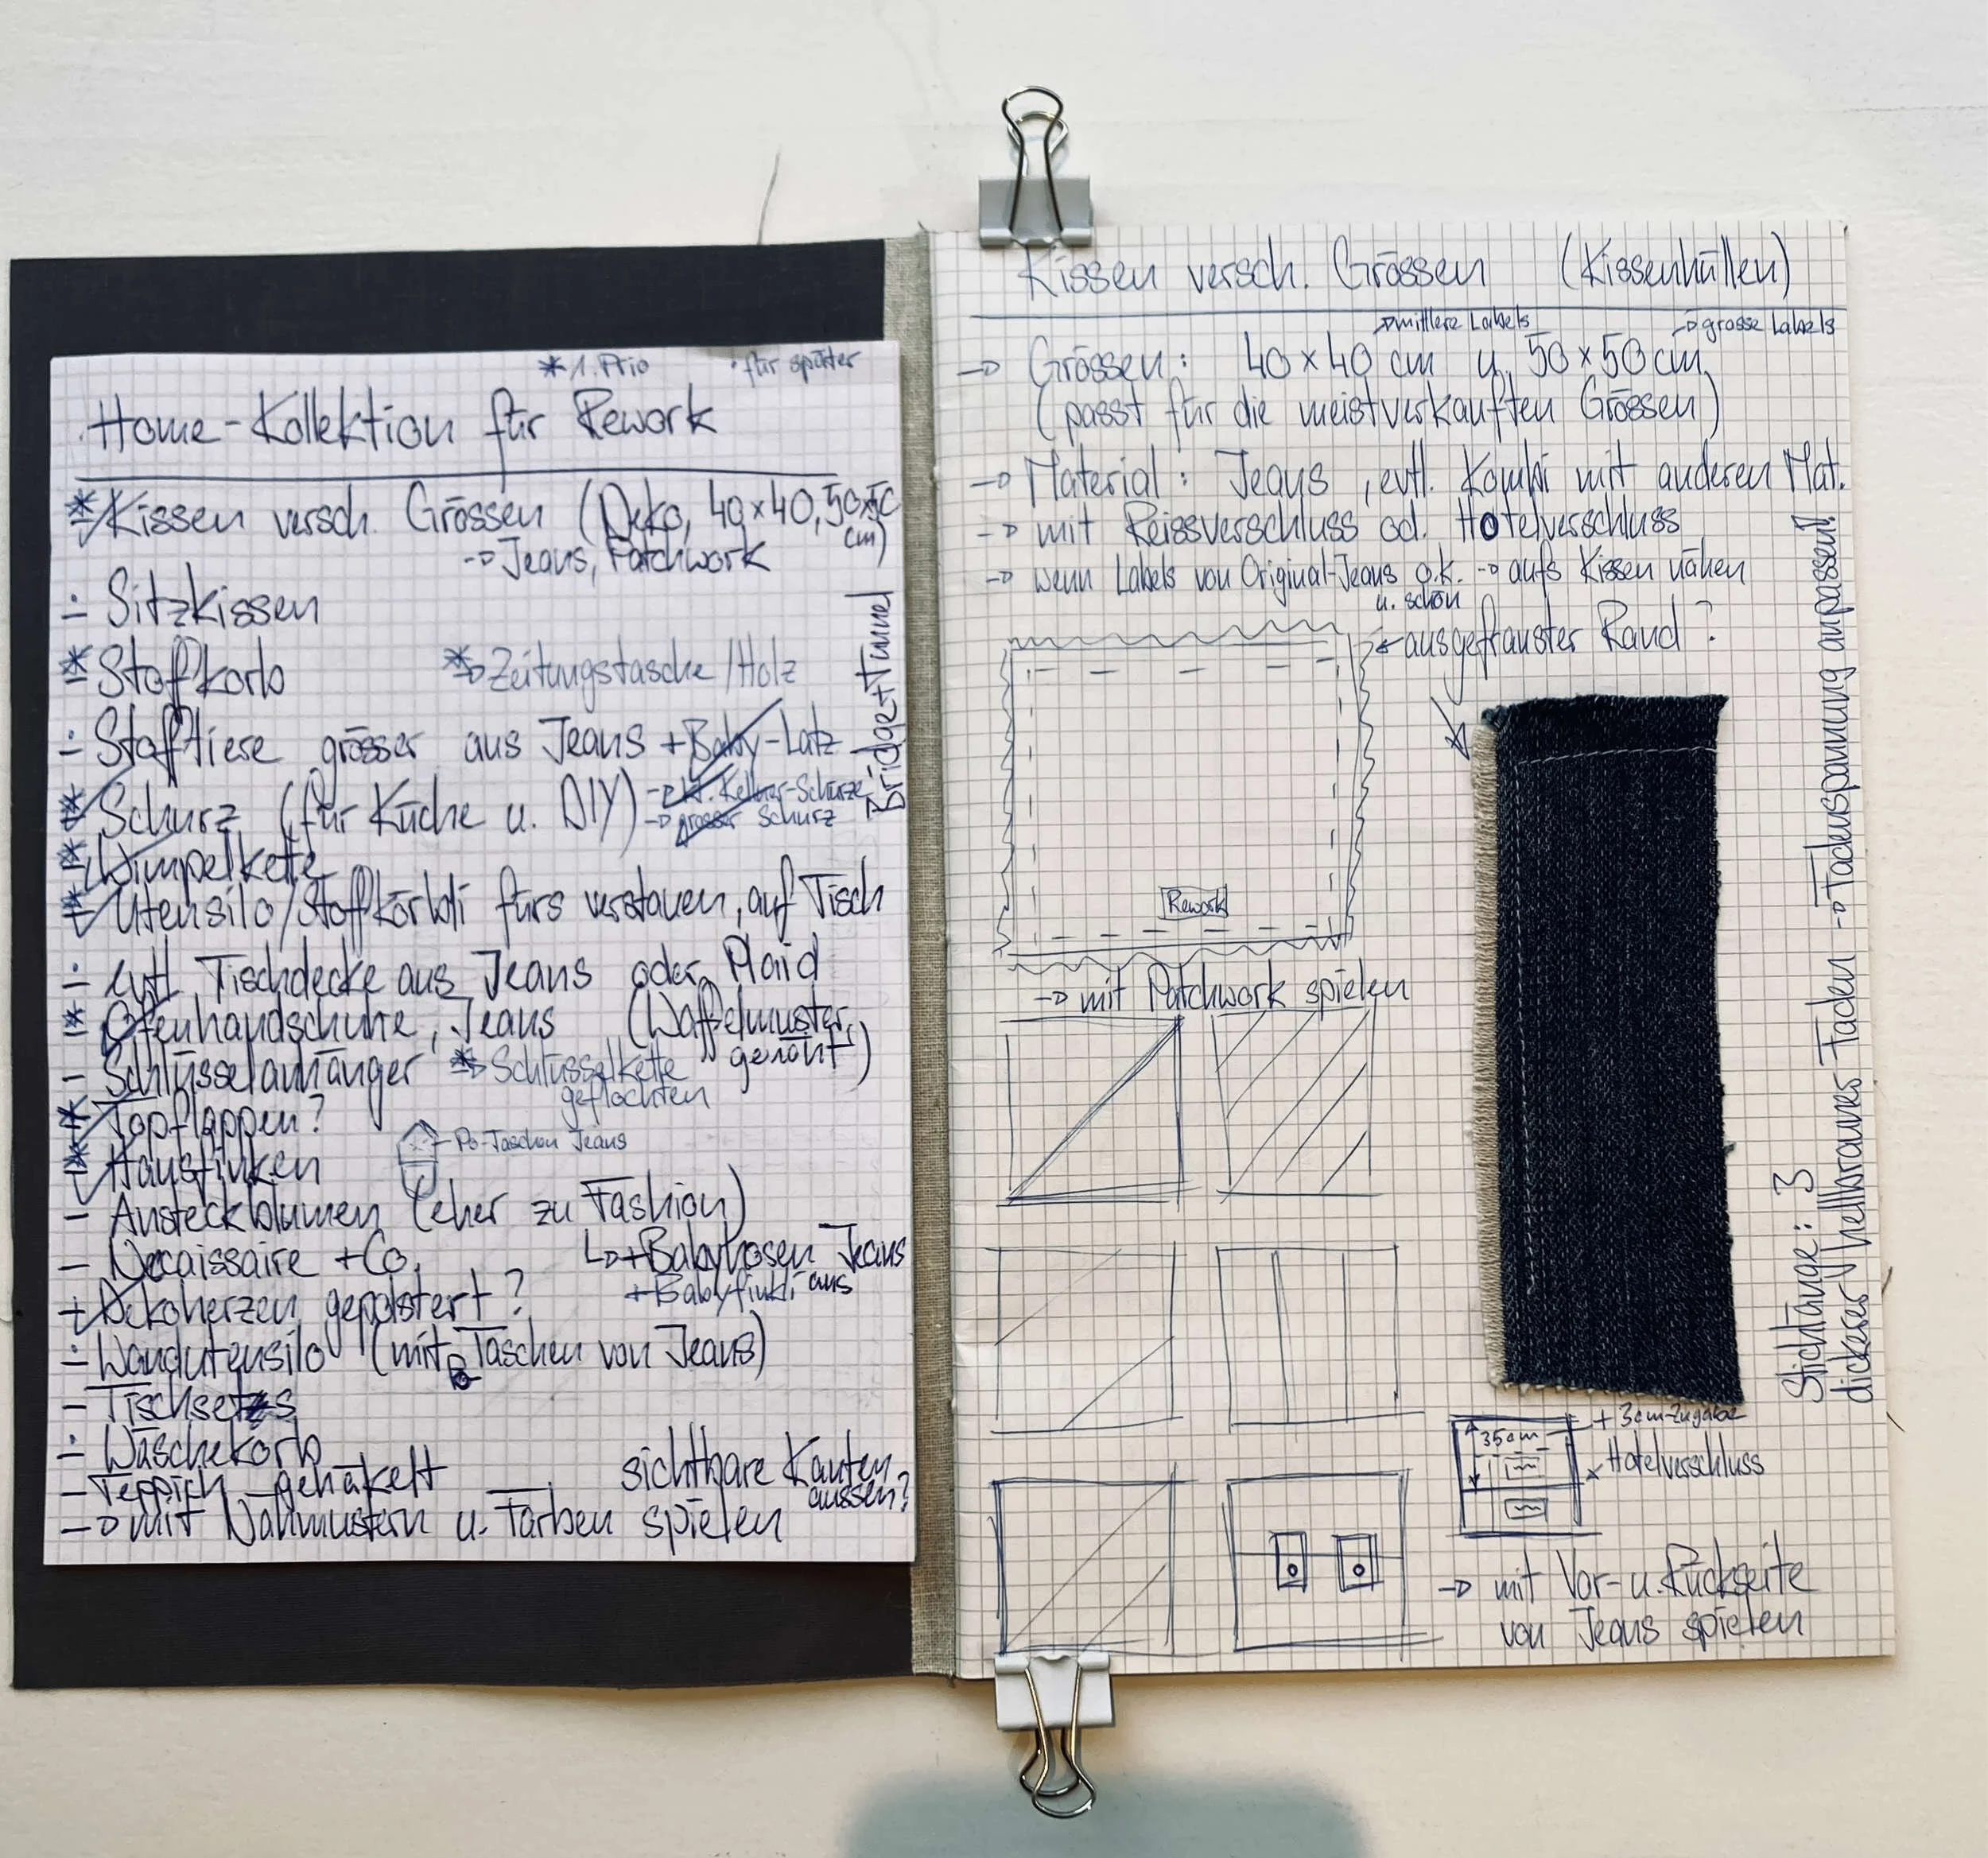 * 1. Prio · für später
Home-Kollektion für Rework
* Kissen versch. Grössen (Deko, 40x40, 50x50 cm)
-> Jeans, Patchwork
- Sitzkissen
* Stoffkorb * -> Zeitungstasche/Holz
- Stofftiere grösser aus Jeans + Baby-Latz
* Schurz (für Küche u. DIY) -> kl. Kellner-Schürze
-> grosser Schurz
Bridge+Tunnel
* Wimpelkette
* Utensilo/Stoffkörbli fürs verstauen, auf Tisch
- evtl. Tischdecke aus Jeans oder Plaid
* Ofenhandschuhe, Jeans (Waffelmuster genäht)
- Schlüsselanhänger * -> Schlüsselkette geflochten
* Topflappen?
Po-Taschen Jeans
* Hausfinken
- Ansteckblumen (eher zu Fashion)
- Necaissaire + Co. -> + Babyhosen Jeans
+ Babyfinkli aus
- Dekoherzen gepolstert?
- Wandutensilo (mit Taschen von Jeans)
- Tischsets
- Wäschekorb
- Teppich gehäkelt sichtbare Kanten aussen?
-> mit Nähmustern u. Farben spielen
Kissen versch. Grössen (Kissenhüllen)
-> mittlere Labels -> grosse Labels
-> Grössen: 40 x 40 cm u. 50 x 50 cm
(passt für die meistverkauften Grössen)
-> Material: Jeans, evtl. Kombi mit anderen Mat.
-> mit Reissverschluss od. Hotelverschluss
-> wenn Labels von Original-Jeans o.k. u. schön -> aufs Kissen nähen
ausgefranster Rand?
Rework
-> mit Patchwork spielen
Stichlänge: 3
dickerer hellbrauner Faden -> Fadenspannung anpassen!
+ 3cm Zugabe
35cm
x Hotelverschluss
-> mit Vor- u. Rückseite
von Jeans spielen